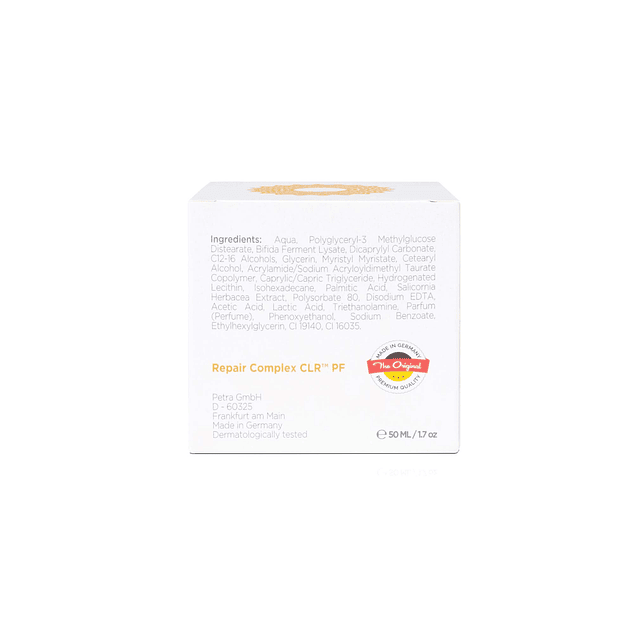 Ingredients: Aqua, Polyglyceryl-3 Methylglucose
Distearate, Bifida Ferment Lysate, Dicaprylyl Carbonate,
C12-16 Alcohols, Glycerin, Myristyl Myristate, Cetearyl
Alcohol, Acrylamide/Sodium Acryloyldimethyl Taurate
Copolymer, Caprylic/Capric Triglyceride, Hydrogenated
Lecithin, Isohexadecane, Palmitic Acid, Salicornia
Herbacea Extract, Polysorbate 80, Disodium EDTA,
Acetic Acid, Lactic Acid, Triethanolamine, Parfum
(Perfume), Phenoxyethanol, Sodium Benzoate,
Ethylhexylglycerin, CI 19140, CI 16035.
Repair Complex CLR™ PF
MADE IN GERMANY
The Original
PREMIUM QUALITY
Petra GmbH
D - 60325
Frankfurt am Main
Made in Germany
Dermatologically tested
℮ 50 ML / 1.7 oz